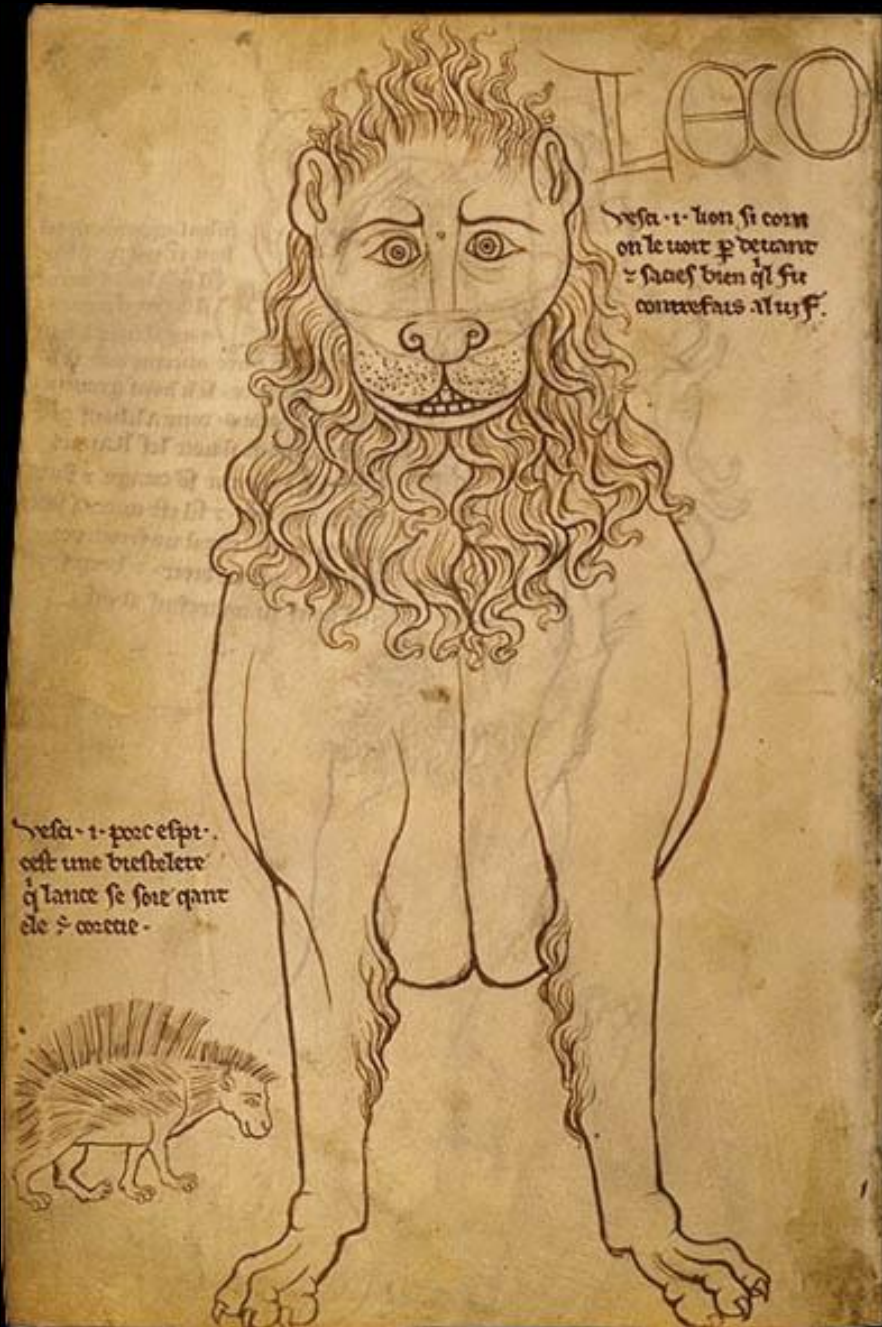 LEO
vesci ·i· lion si com
on le voit p devant
⁊ sacies bien ql fu
contrefais al vif.
vesci ·i· porc espi·.
cest une biestelete
q lance se soie qant
ele ē corecie·